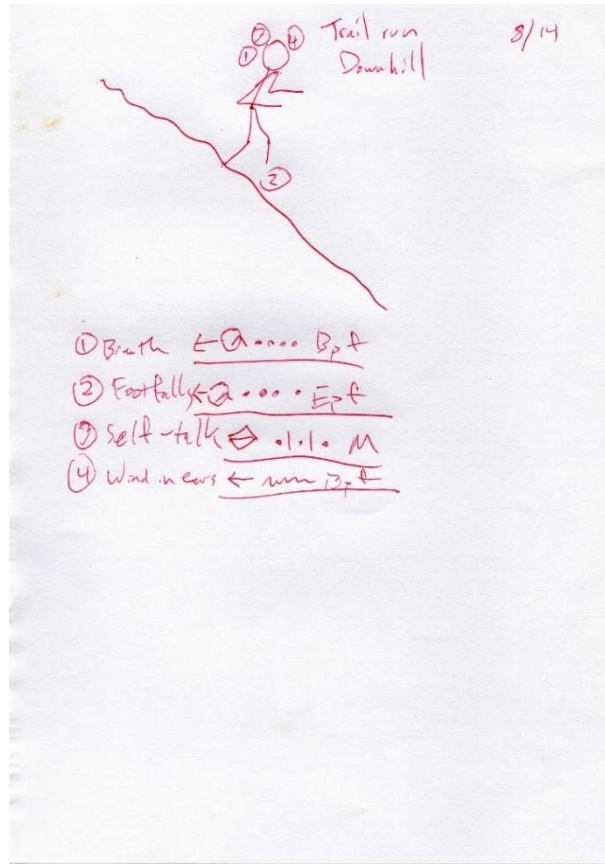 ① ③ ④ Trail run 8/14
Downhill
②
① Breath ← a •••• Bp f
② Footfalls ← a •••• Ep f
③ Self-talk •|•|• M
④ Wind in ears ← Bp f